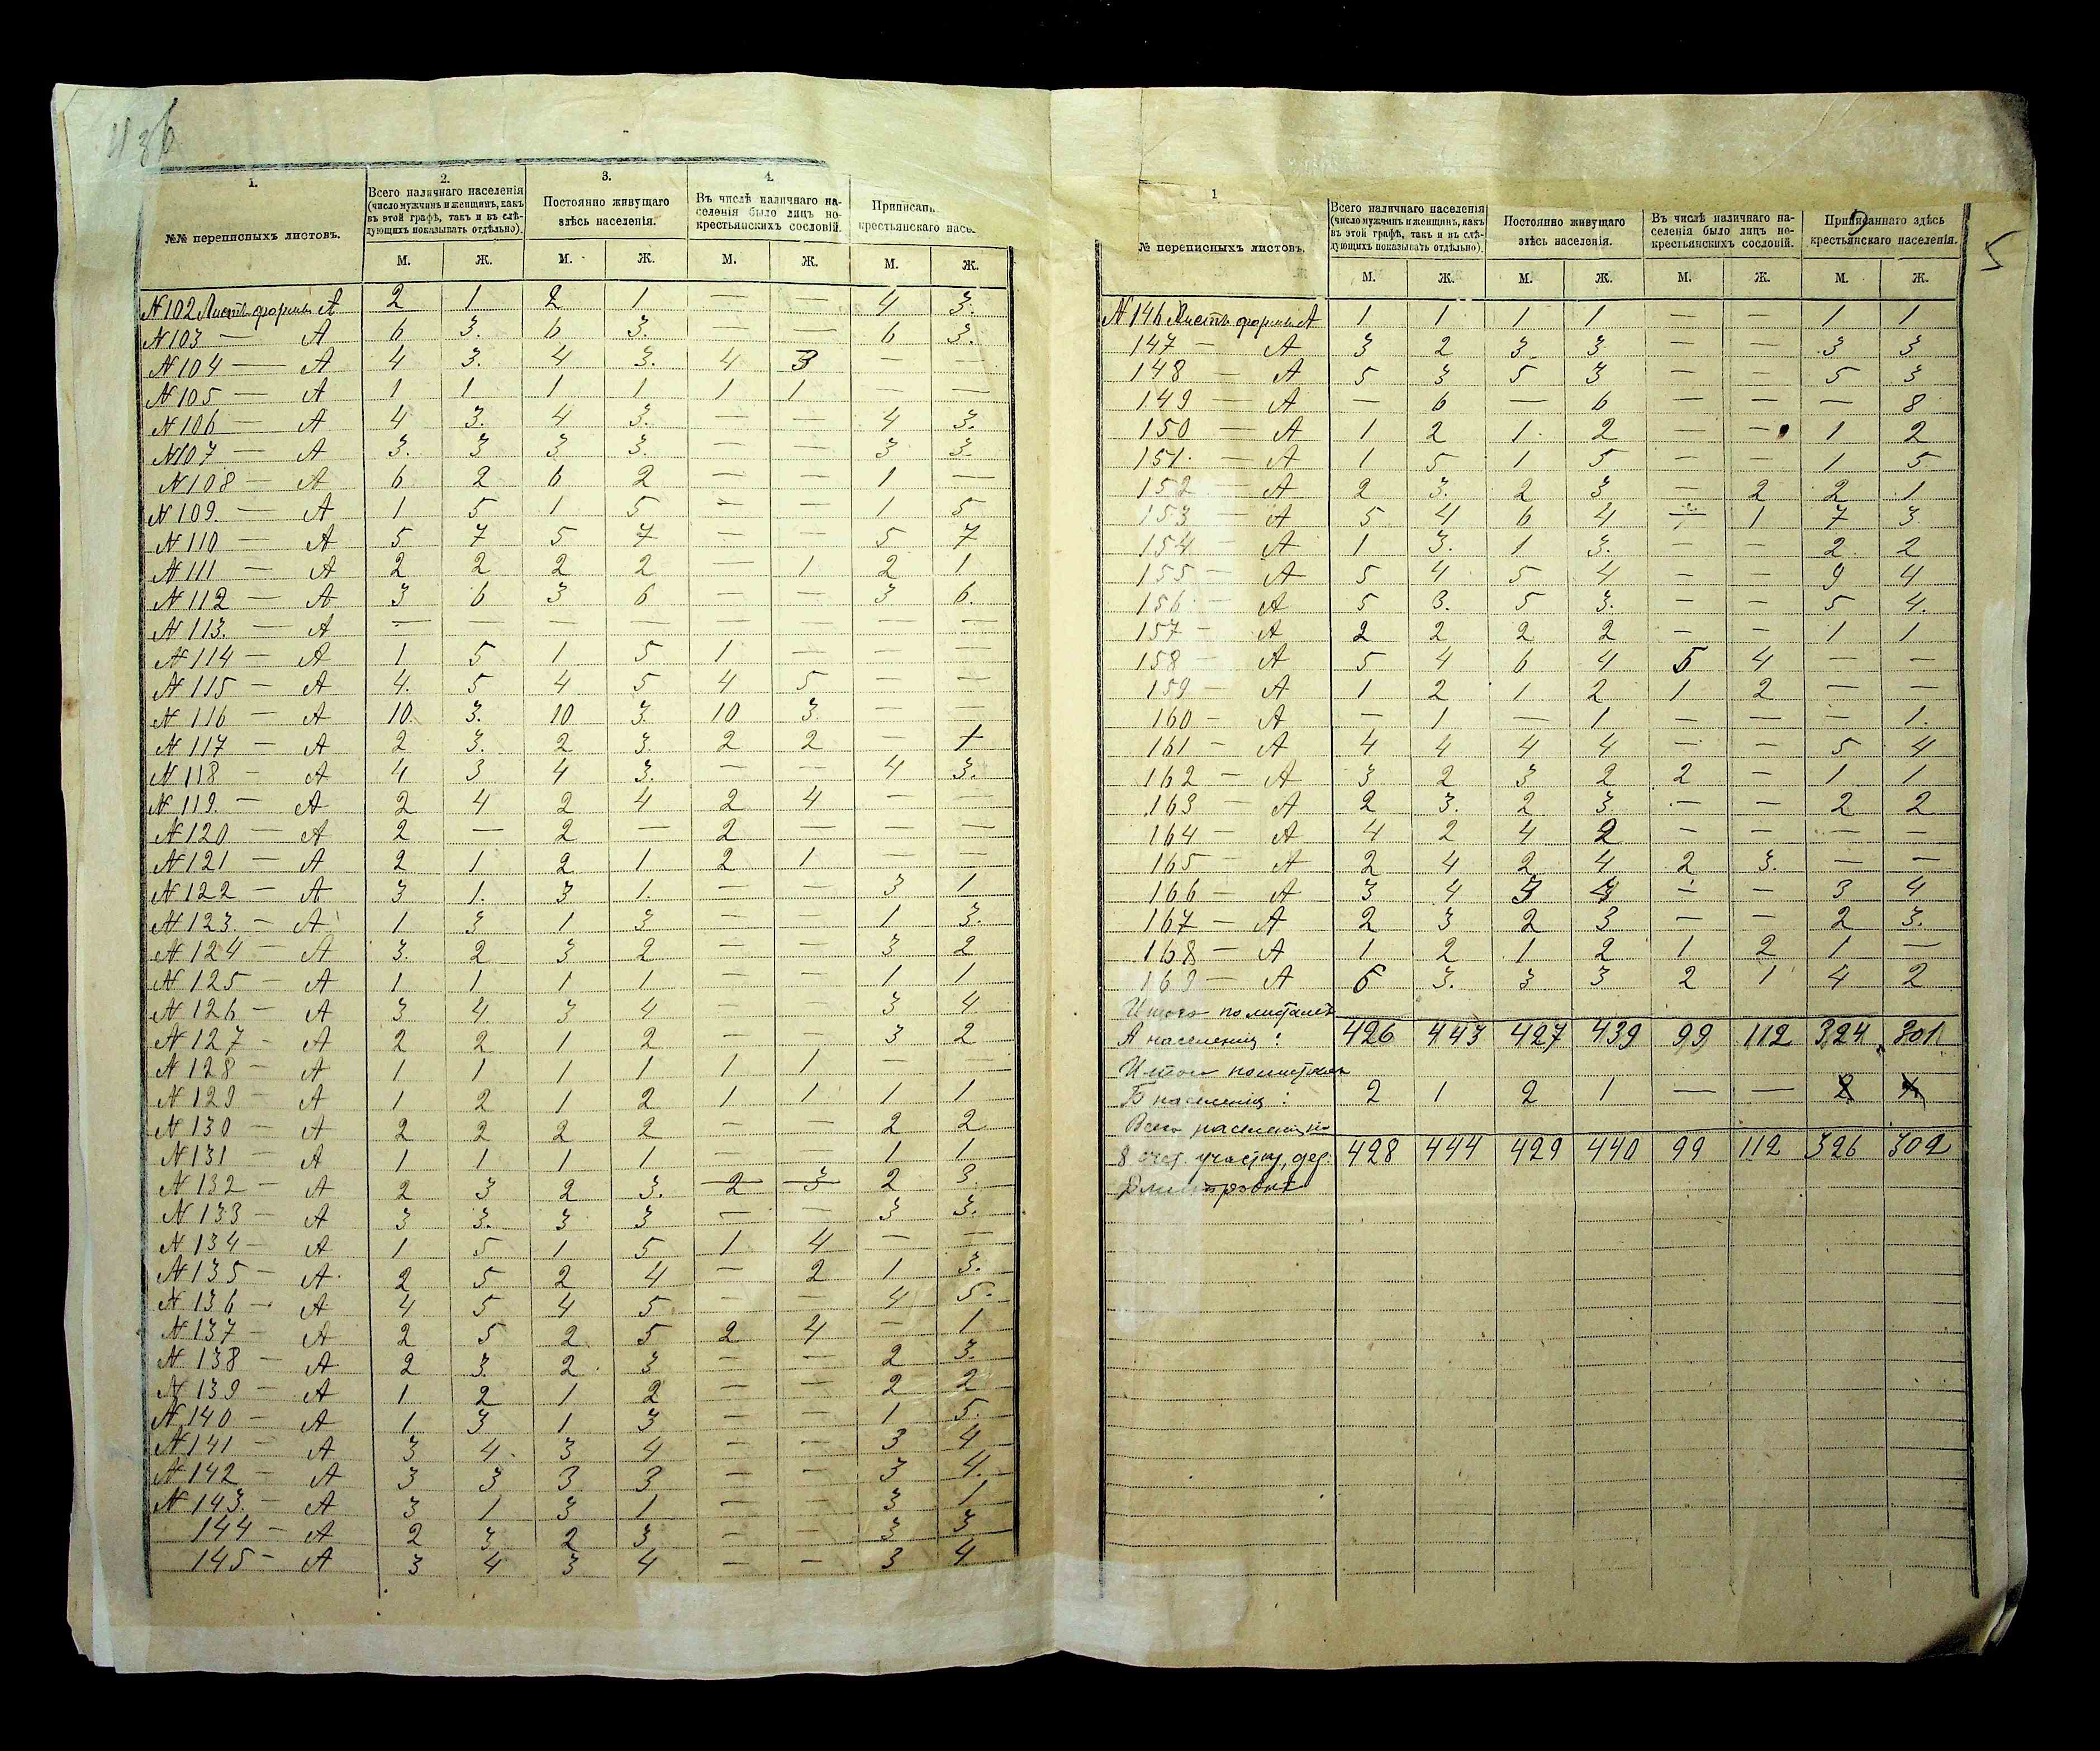 436
1.
2.
3.
4.
№№ переписныхъ листовъ.
Всего наличнаго населенія
(число мужчинъ и женщинъ, какъ
въ этой графѣ, такъ и въ слѣ-
дующихъ показывать отдѣльно).
Постоянно живущаго
здѣсь населенія.
Въ числѣ наличнаго на-
селенія было лицъ не-
крестьянскихъ сословій.
Приписан
крестьянскаго насе
М. Ж. М. Ж. М. Ж. М. Ж.
№ 102 Листъ формы А 2 1 2 1 — — 4 3.
№ 103 — А 6 3. 6 3. — — 6 3.
№ 104 — А 4 3. 4 3. 4 3 — —
№ 105 — А 1 1 1 1 1 1 — —
№ 106 — А 4 3. 4 3. — — 4 3.
№ 107 — А 3. 3 3 3. — — 3 3.
№ 108 — А 6 2 6 2 — — 1 —
№ 109. — А 1 5 1 5 — — 1 5
№ 110 — А 5 7 5 7 — — 5 7
№ 111 — А 2 2 2 2 — 1 2 1
№ 112 — А 3 6 3 6 — — 3 6.
№ 113. — А — — — — — — — —
№ 114 — А 1 5 1 5 1 — — —
№ 115 — А 4. 5 4 5 4 5 — —
№ 116 — А 10. 3. 10 3. 10 3 — —
№ 117 — А 2 3. 2 3. 2 2 — 1
№ 118 — А 4 3 4 3. — — 4 3.
№ 119. — А 2 4 2 4 2 4 — —
№ 120 — А 2 — 2 — 2 — — —
№ 121 — А 2 1 2 1 2 1 — —
№ 122 — А 3 1. 3 1. — — 3 1
№ 123 — А 1 3 1 3 — — 1 3.
№ 124 — А 3. 2 3 2 — — 3 2
№ 125 — А 1 1 1 1 — — 1 1
№ 126 — А 3 4. 3 4 — — 3 4
№ 127 — А 2 2 1 2 — — 3 2
№ 128 — А 1 1 1 1 1 1 — —
№ 129 — А 1 2 1 2 1 1 1 1
№ 130 — А 2 2 2 2 — — 2 2
№ 131 — А 1 1 1 1 — — 1 1
№ 132 — А 2 3 2 3. 2 3 2 3.
№ 133 — А 3 3. 3 3 — — 3 3.
№ 134 — А 1 5 1 5 1 4 — —
№ 135 — А. 2 5 2 4 — 2 1 3.
№ 136 — А 4 5 4 5 — — 4 5.
№ 137 — А 2 5 2 5 2 4 — 1
№ 138 — А 2 3. 2 3 — — 2 3.
№ 139 — А 1 2 1 2 — — 2 2
№ 140 — А 1 3 1 3 — — 1 5.
№ 141 — А 3 4. 3 4 — — 3 4
№ 142 — А 3 3 3 3 — — 3 4.
№ 143. — А 3 1 3 1 — — 3 1
144 — А 2 3 2 3 — — 3 3
145 — А 3 4 3 4 — — 3 4
5
1
№ переписныхъ листовъ.
Всего наличнаго населенія
(число мужчинъ и женщинъ, какъ
въ этой графѣ, такъ и въ слѣ-
дующихъ показывать отдѣльно).
Постоянно живущаго
здѣсь населенія.
Въ числѣ наличнаго на-
селенія было лицъ не-
крестьянскихъ сословій.
Приписаннаго здѣсь
крестьянскаго населенія.
М. Ж. М. Ж. М. Ж. М. Ж.
№ 146 Листъ формы А 1 1 1 1 — — 1 1
147 — А 3 2 3 3 — — 3 3
148 — А 5 3 5 3 — — 5 3
149 — А — 6 — 6 — — — 8
150 — А 1 2 1. 2 — — 1 2
151. — А 1 5 1 5 — — 1 5
152 — А 2 3. 2 3 — 2 2 1
153 — А 5 4 6 4 — 1 7 3
154 — А 1 3. 1 3. — — 2. 2
155 — А 5 4 5 4 — — 9 4
156 — А 5 3. 5 3. — — 5 4.
157 — А 2 2 2 2 — — 1 1
158 — А 5 4 6 4 5 4 — —
159 — А 1 2 1 2 1 2 — —
160 — А — 1 — 1 — — — 1.
161 — А 4 4 4 4 — — 5 4
162 — А 3 2 3 2 2 — 1 1
163 — А 2 3. 2 3. — — 2 2
164 — А 4 2 4 2 — — — —
165 — А 2 4 2 4 2 3. — —
166 — А 3 4 3 4 — — 3 4
167 — А 2 3 2 3 — — 2 3.
168 — А 1 2 1 2 1 2 1 —
169 — А 6 3. 3 3 2 1 4 2
Итого по листамъ
А населенія: 426 443 427 439 99 112 324 301
Итого по листамъ
Б населенія: 2 1 2 1 — —
Всего населенія
8 счет. участку, дер. 428 444 429 440 99 112 326 302
Дмитровка